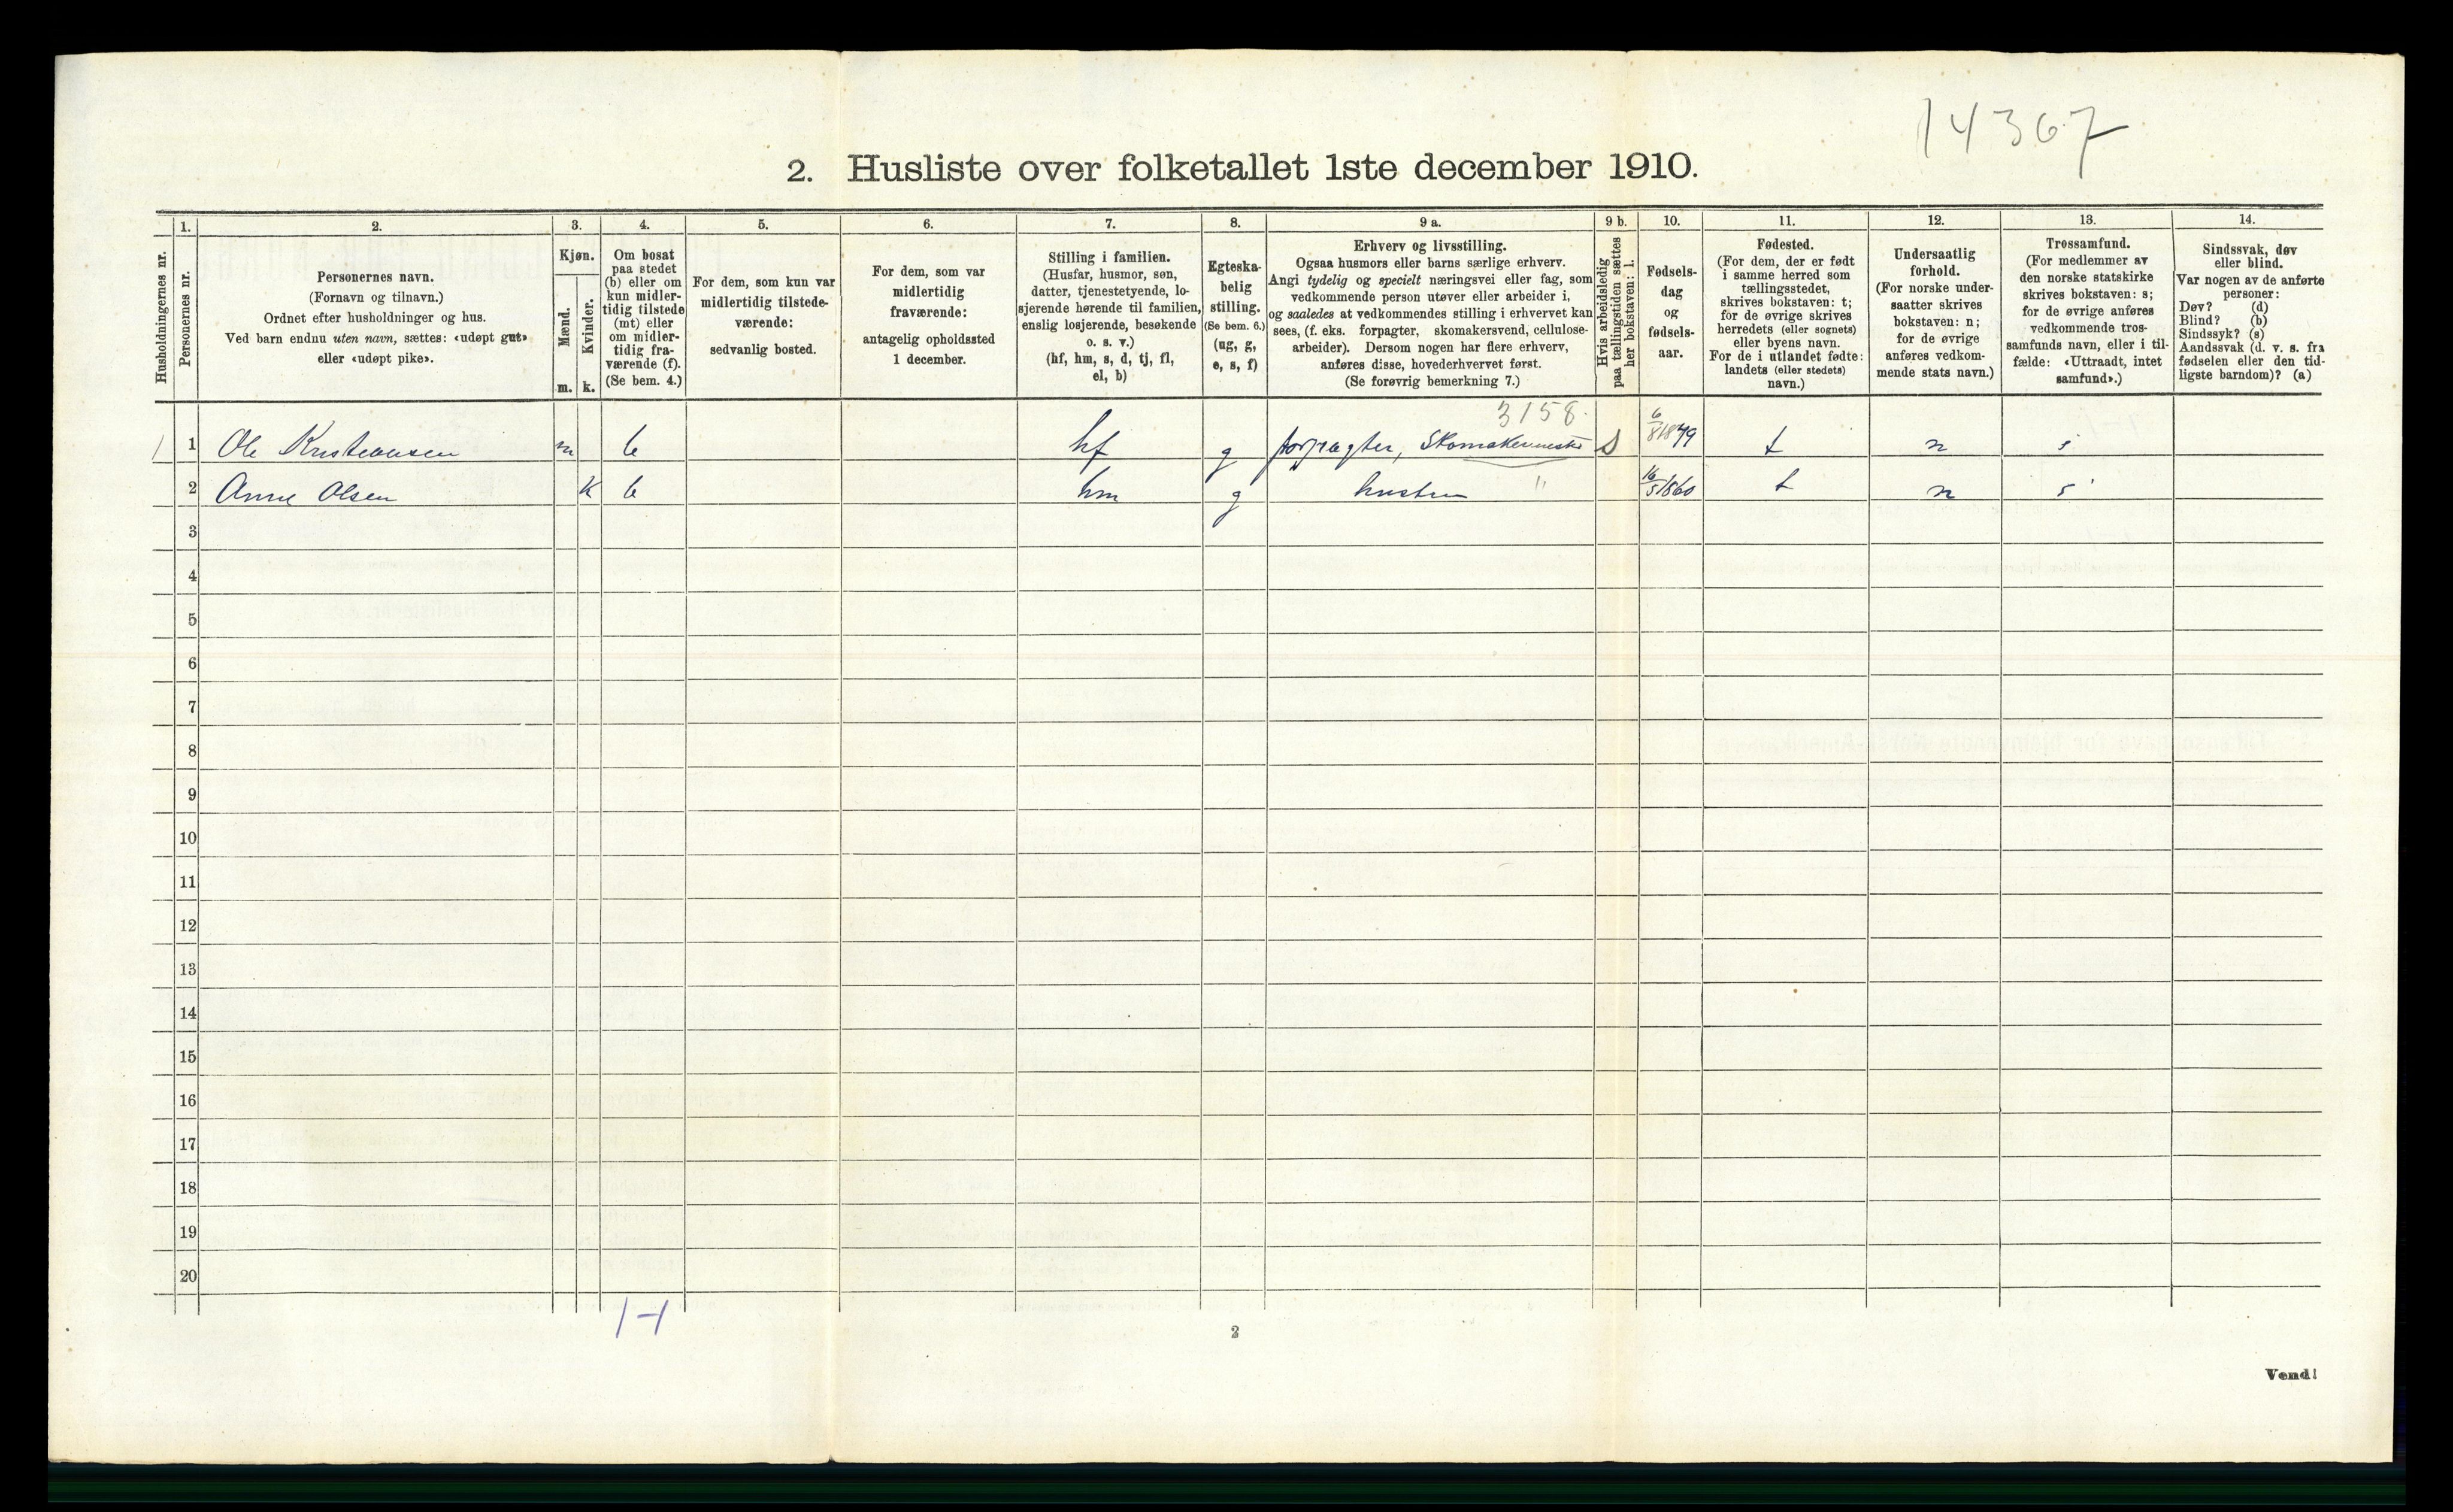 14367
2. Husliste over folketallet 1ste december 1910.
Husholdningernes nr.
1.
Personernes nr.
2.
Personernes navn.
(Fornavn og tilnavn.)
Ordnet efter husholdninger og hus.
Ved barn endnu uten navn, sættes: «udøpt gut»
eller «udøpt pike».
3.
Kjøn.
Mænd.
m.
Kvinder.
k.
4.
Om bosat
paa stedet
(b) eller om
kun midler-
tidig tilstede
(mt) eller
om midler-
tidig fra-
værende (f).
(Se bem. 4.)
5.
For dem, som kun var
midlertidig tilstede-
værende:
sedvanlig bosted.
6.
For dem, som var
midlertidig
fraværende:
antagelig opholdssted
1 december.
7.
Stilling i familien.
(Husfar, husmor, søn,
datter, tjenestetyende, lo-
sjerende hørende til familien,
enslig losjerende, besøkende
o. s. v.)
(hf, hm, s, d, tj, fl,
el, b)
8.
Egteska-
belig
stilling.
(Se bem. 6.)
(ug, g,
e, s, f)
9 a.
Erhverv og livsstilling.
Ogsaa husmors eller barns særlige erhverv.
Angi tydelig og specielt næringsvei eller fag, som
vedkommende person utøver eller arbeider i,
og saaledes at vedkommendes stilling i erhvervet kan
sees, (f. eks. forpagter, skomakersvend, cellulose-
arbeider). Dersom nogen har flere erhverv,
anføres disse, hovederhvervet først.
(Se forøvrig bemerkning 7.)
9 b.
Hvis arbeidsledig
paa tællingstiden sættes
her bokstaven: l.
10.
Fødsels-
dag
og
fødsels-
aar.
11.
Fødested.
(For dem, der er født
i samme herred som
tællingsstedet,
skrives bokstaven: t;
for de øvrige skrives
herredets (eller sognets)
eller byens navn.
For de i utlandet fødte:
landets (eller stedets)
navn.)
12.
Undersaatlig
forhold.
(For norske under-
saatter skrives
bokstaven: n;
for de øvrige
anføres vedkom-
mende stats navn.)
13.
Trossamfund.
(For medlemmer av
den norske statskirke
skrives bokstaven: s;
for de øvrige anføres
vedkommende tros-
samfunds navn, eller i til-
fælde: «Uttraadt, intet
samfund».)
14.
Sindssvak, døv
eller blind.
Var nogen av de anførte
personer:
Døv? (d)
Blind? (b)
Sindssyk? (s)
Aandssvak (d. v. s. fra
fødselen eller den tid-
ligste barndom)? (a)
3158
1 1 Ole Kristiansen m b hf g forpagter, Skomakermester S t n s
2 Anne Olsen k b hm g hustru " 16/5 1860 t n s
3
4
5
6
7
8
9
10
11
12
13
14
15
16
17
18
19
20
1-1
2
Vend!